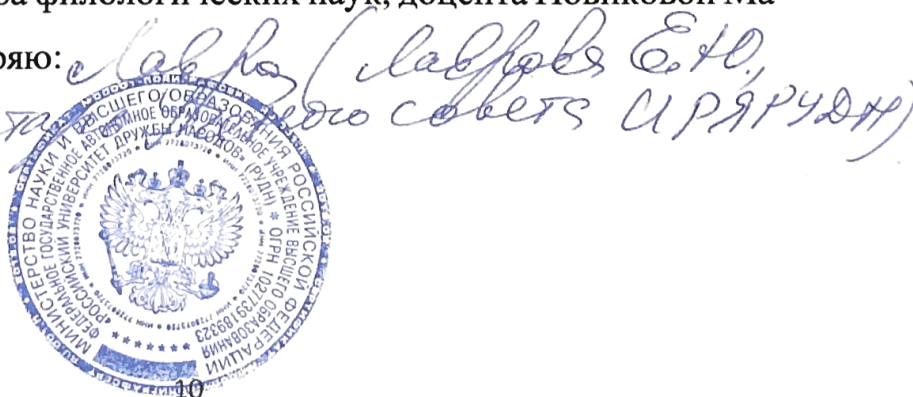 ра филологических наук, доцента Новиковой Ма-
ряю: Лавро (Лаврова Е.Ю.,
совета ИРЯ РУДН)
МИНИСТЕРСТВО НАУКИ И ВЫСШЕГО ОБРАЗОВАНИЯ РОССИЙСКОЙ ФЕДЕРАЦИИ
ФЕДЕРАЛЬНОЕ ГОСУДАРСТВЕННОЕ АВТОНОМНОЕ ОБРАЗОВАТЕЛЬНОЕ УЧРЕЖДЕНИЕ ВЫСШЕГО ОБРАЗОВАНИЯ
«РОССИЙСКИЙ УНИВЕРСИТЕТ ДРУЖБЫ НАРОДОВ» (РУДН) * ОГРН 1027739189323
10